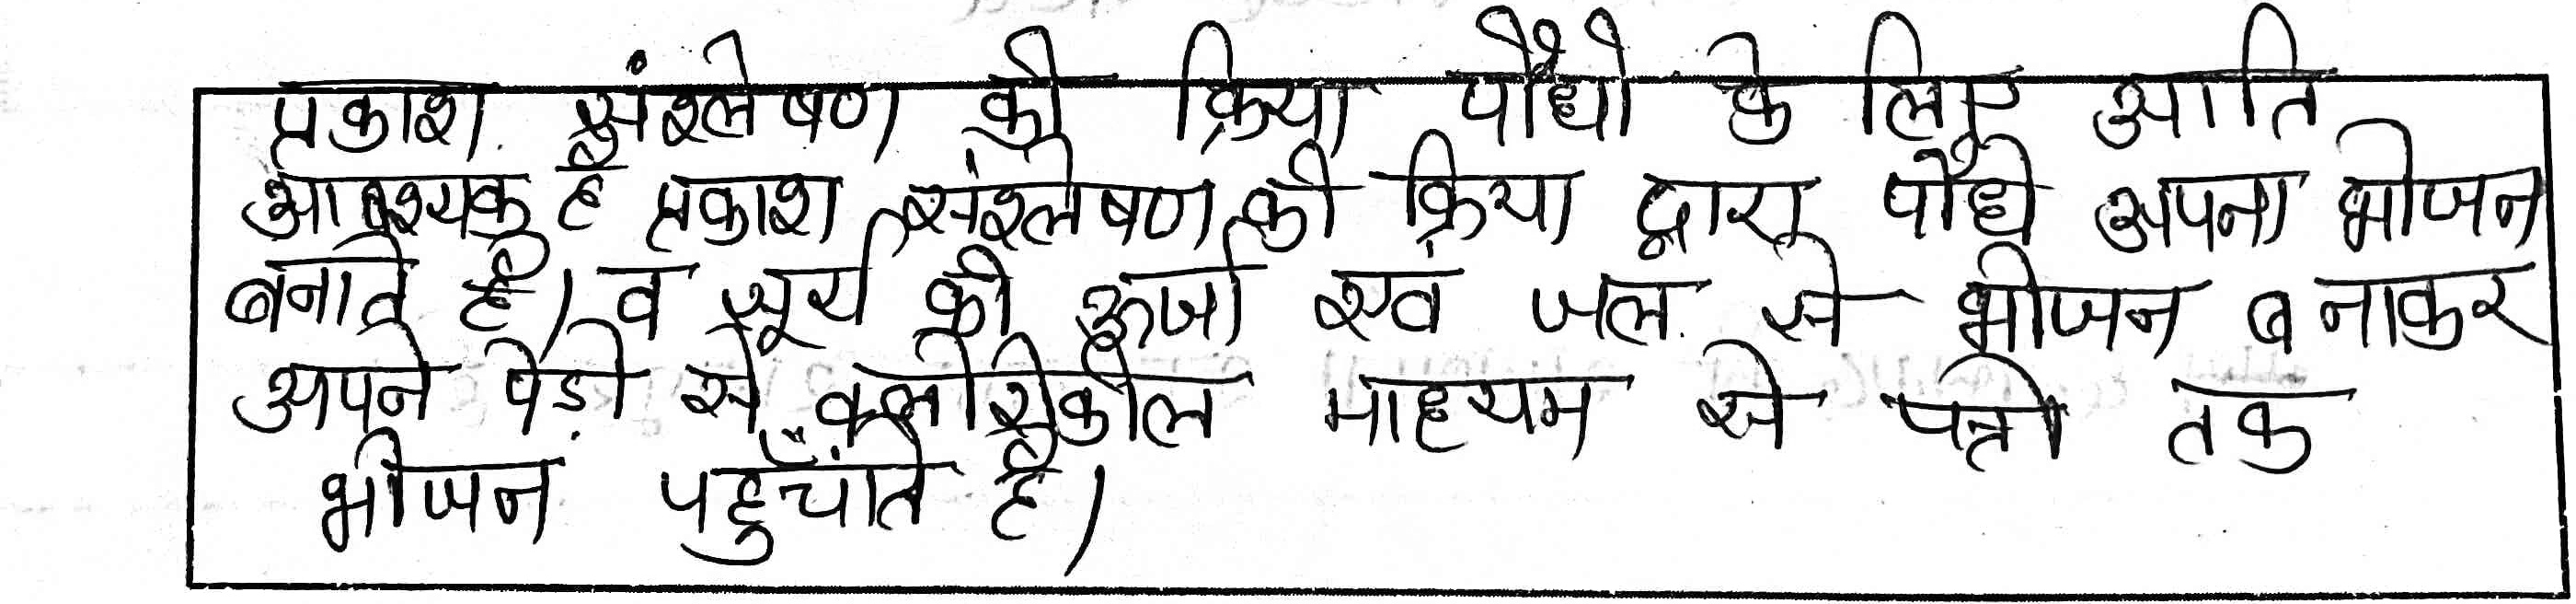 प्रकाश संश्लेषण की क्रिया पौधों के लिए आति
आवश्यक है प्रकाश संश्लेषण की क्रिया द्वारा पौधे अपना भोजन
बनाते है। व सूर्य की ऊर्जा एवं जल से भोजन बनाकर
अपने पेडो से क्लोरोकील माध्यम से पत्तो तक
भोजन पहुँचाते है।